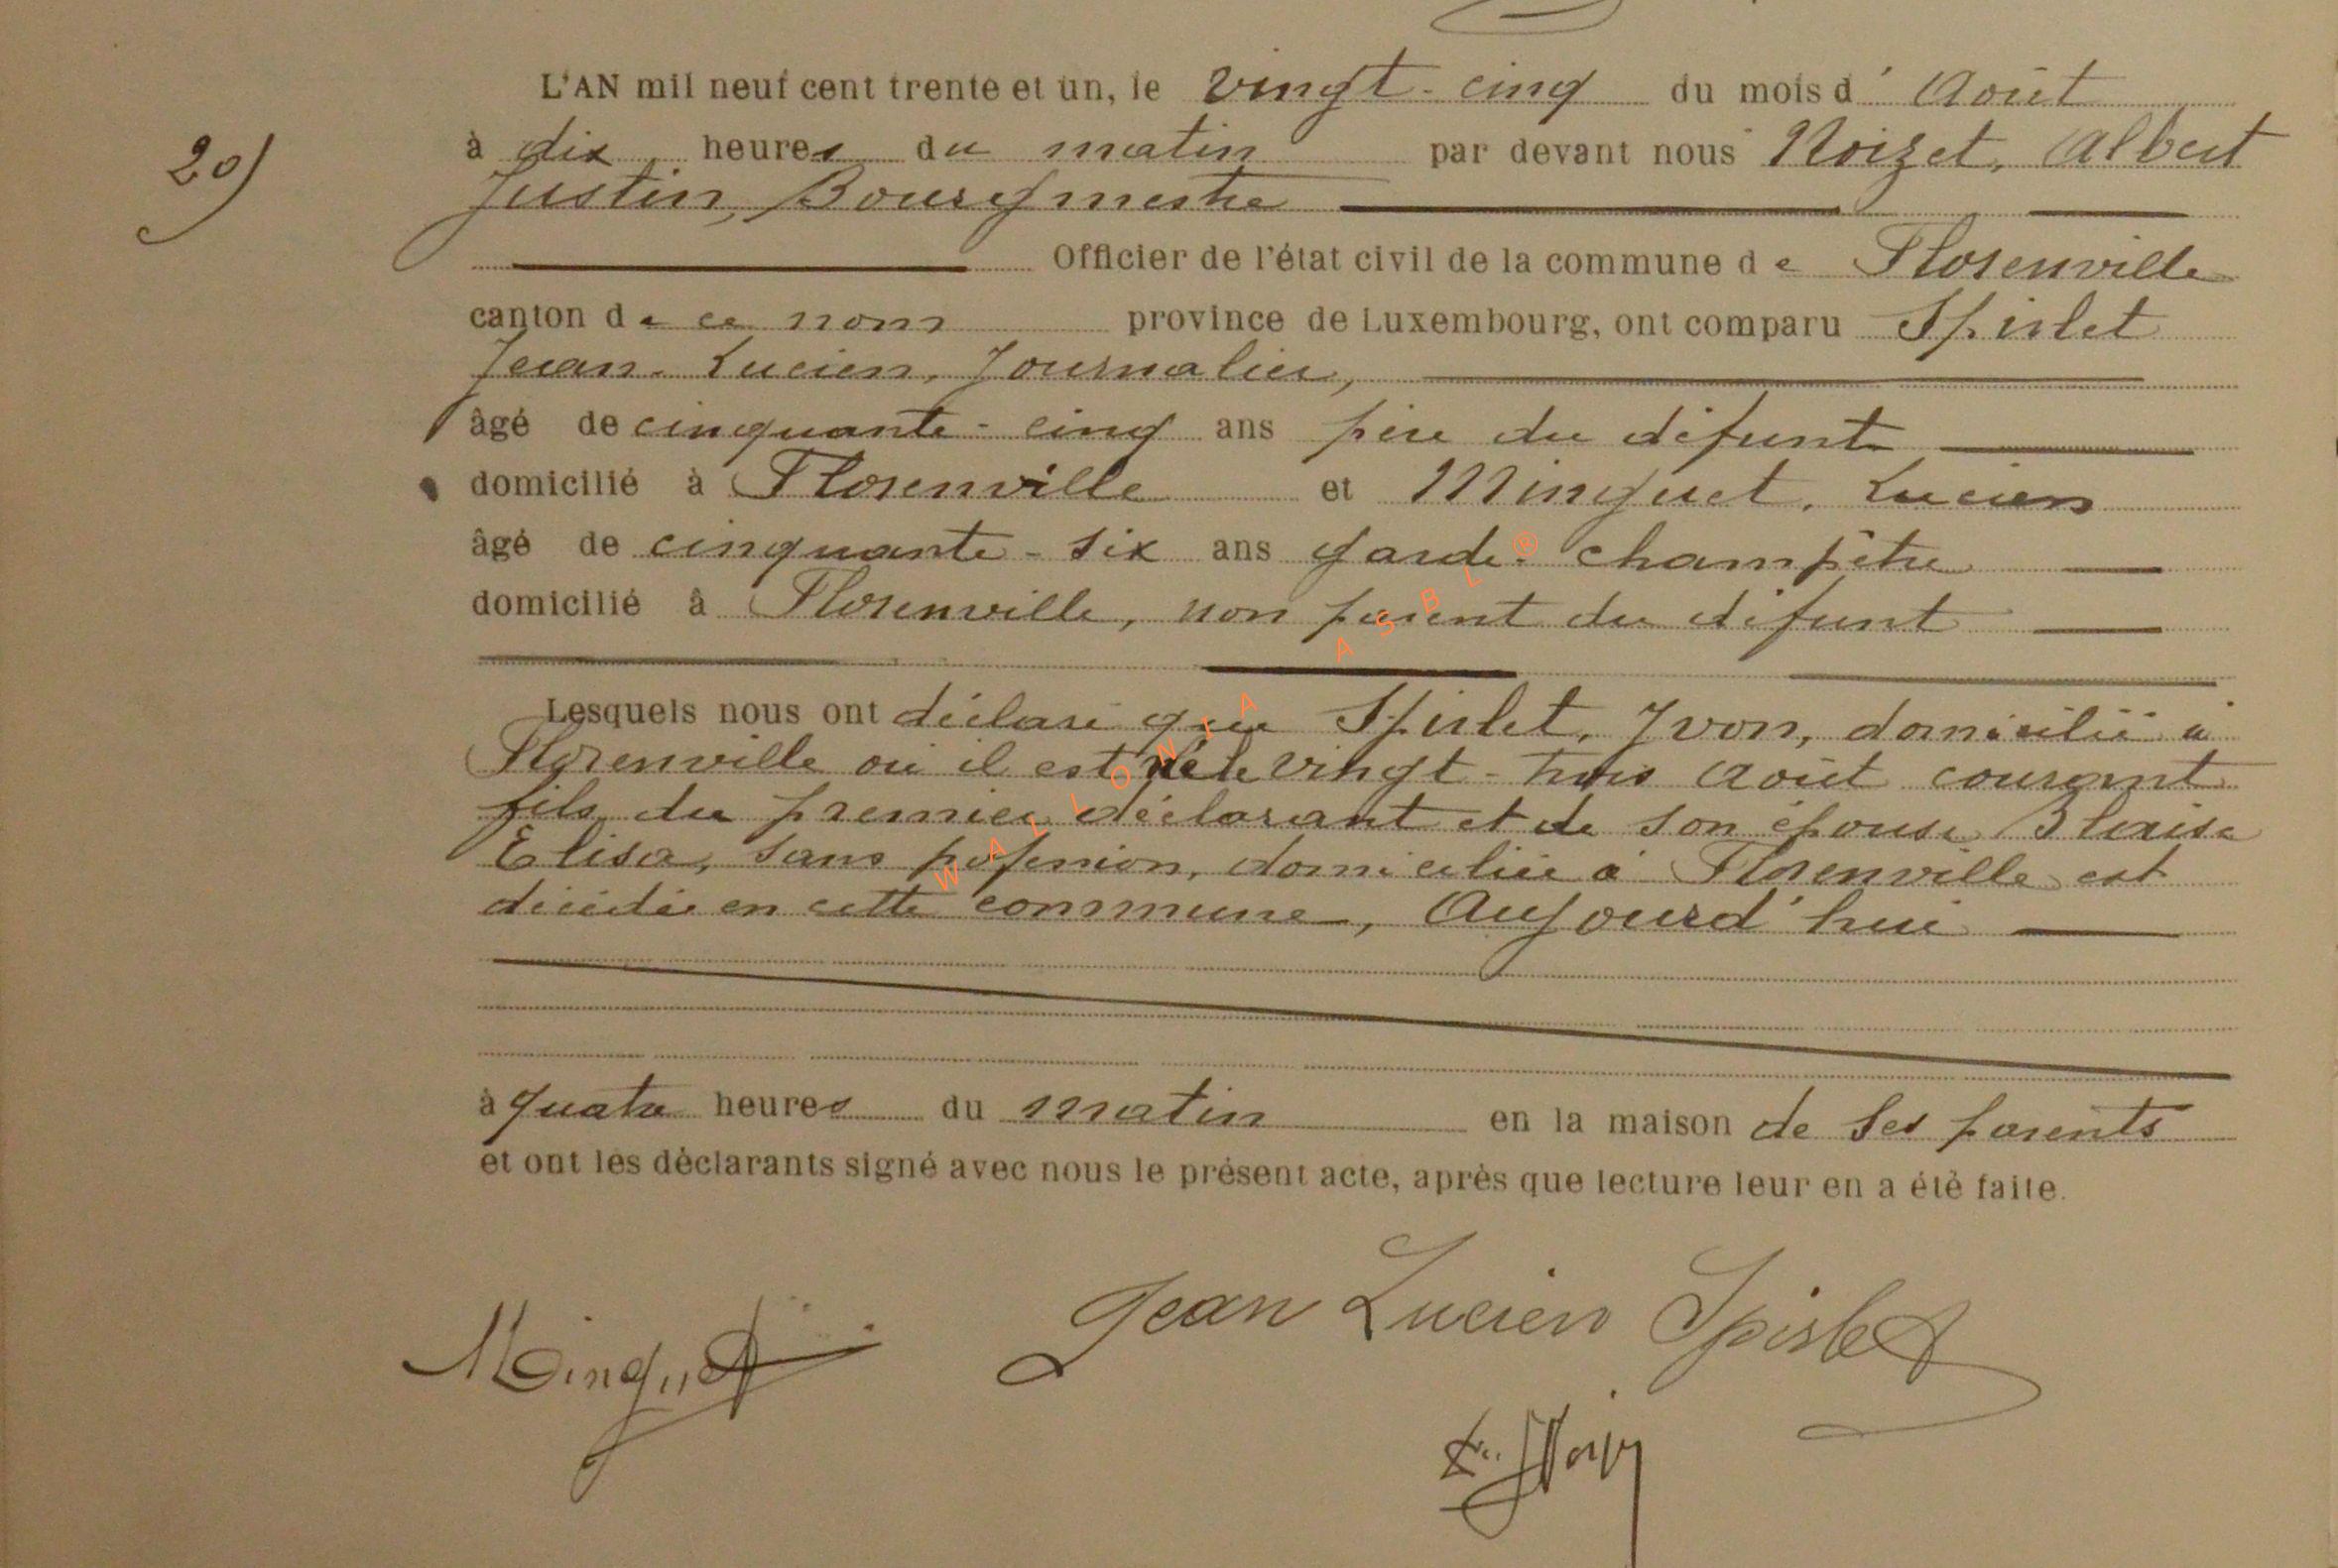 L'AN mil neuf cent trente et un, le vingt-cinq du mois d'Août
20)
à dix heures du matin par devant nous Noizet, Albert
Justin, Bourgmestre
Officier de l'état civil de la commune de Florenville
canton de ce nom province de Luxembourg, ont comparu Spirlet
Jean-Lucien, Journalier,
âgé de cinquante-cinq ans père du défunt
domicilié à Florenville et Minguet, Lucien
âgé de cinquante-six ans garde-champêtre
domicilié à Florenville, non parent du défunt
Lesquels nous ont déclaré que Spirlet, Yvon, domicilié à
Florenville où il est né le vingt-trois Août courant
fils du premier déclarant et de son épouse Blaise
Elisa, sans profession, domiciliée à Florenville est
décédé en cette commune, Aujourd'hui
à quatre heures du matin en la maison de ses parents
et ont les déclarants signé avec nous le présent acte, après que lecture leur en a été faite.
Jean Lucien Spirlet
Minguet
WALLONIA ASBL ®